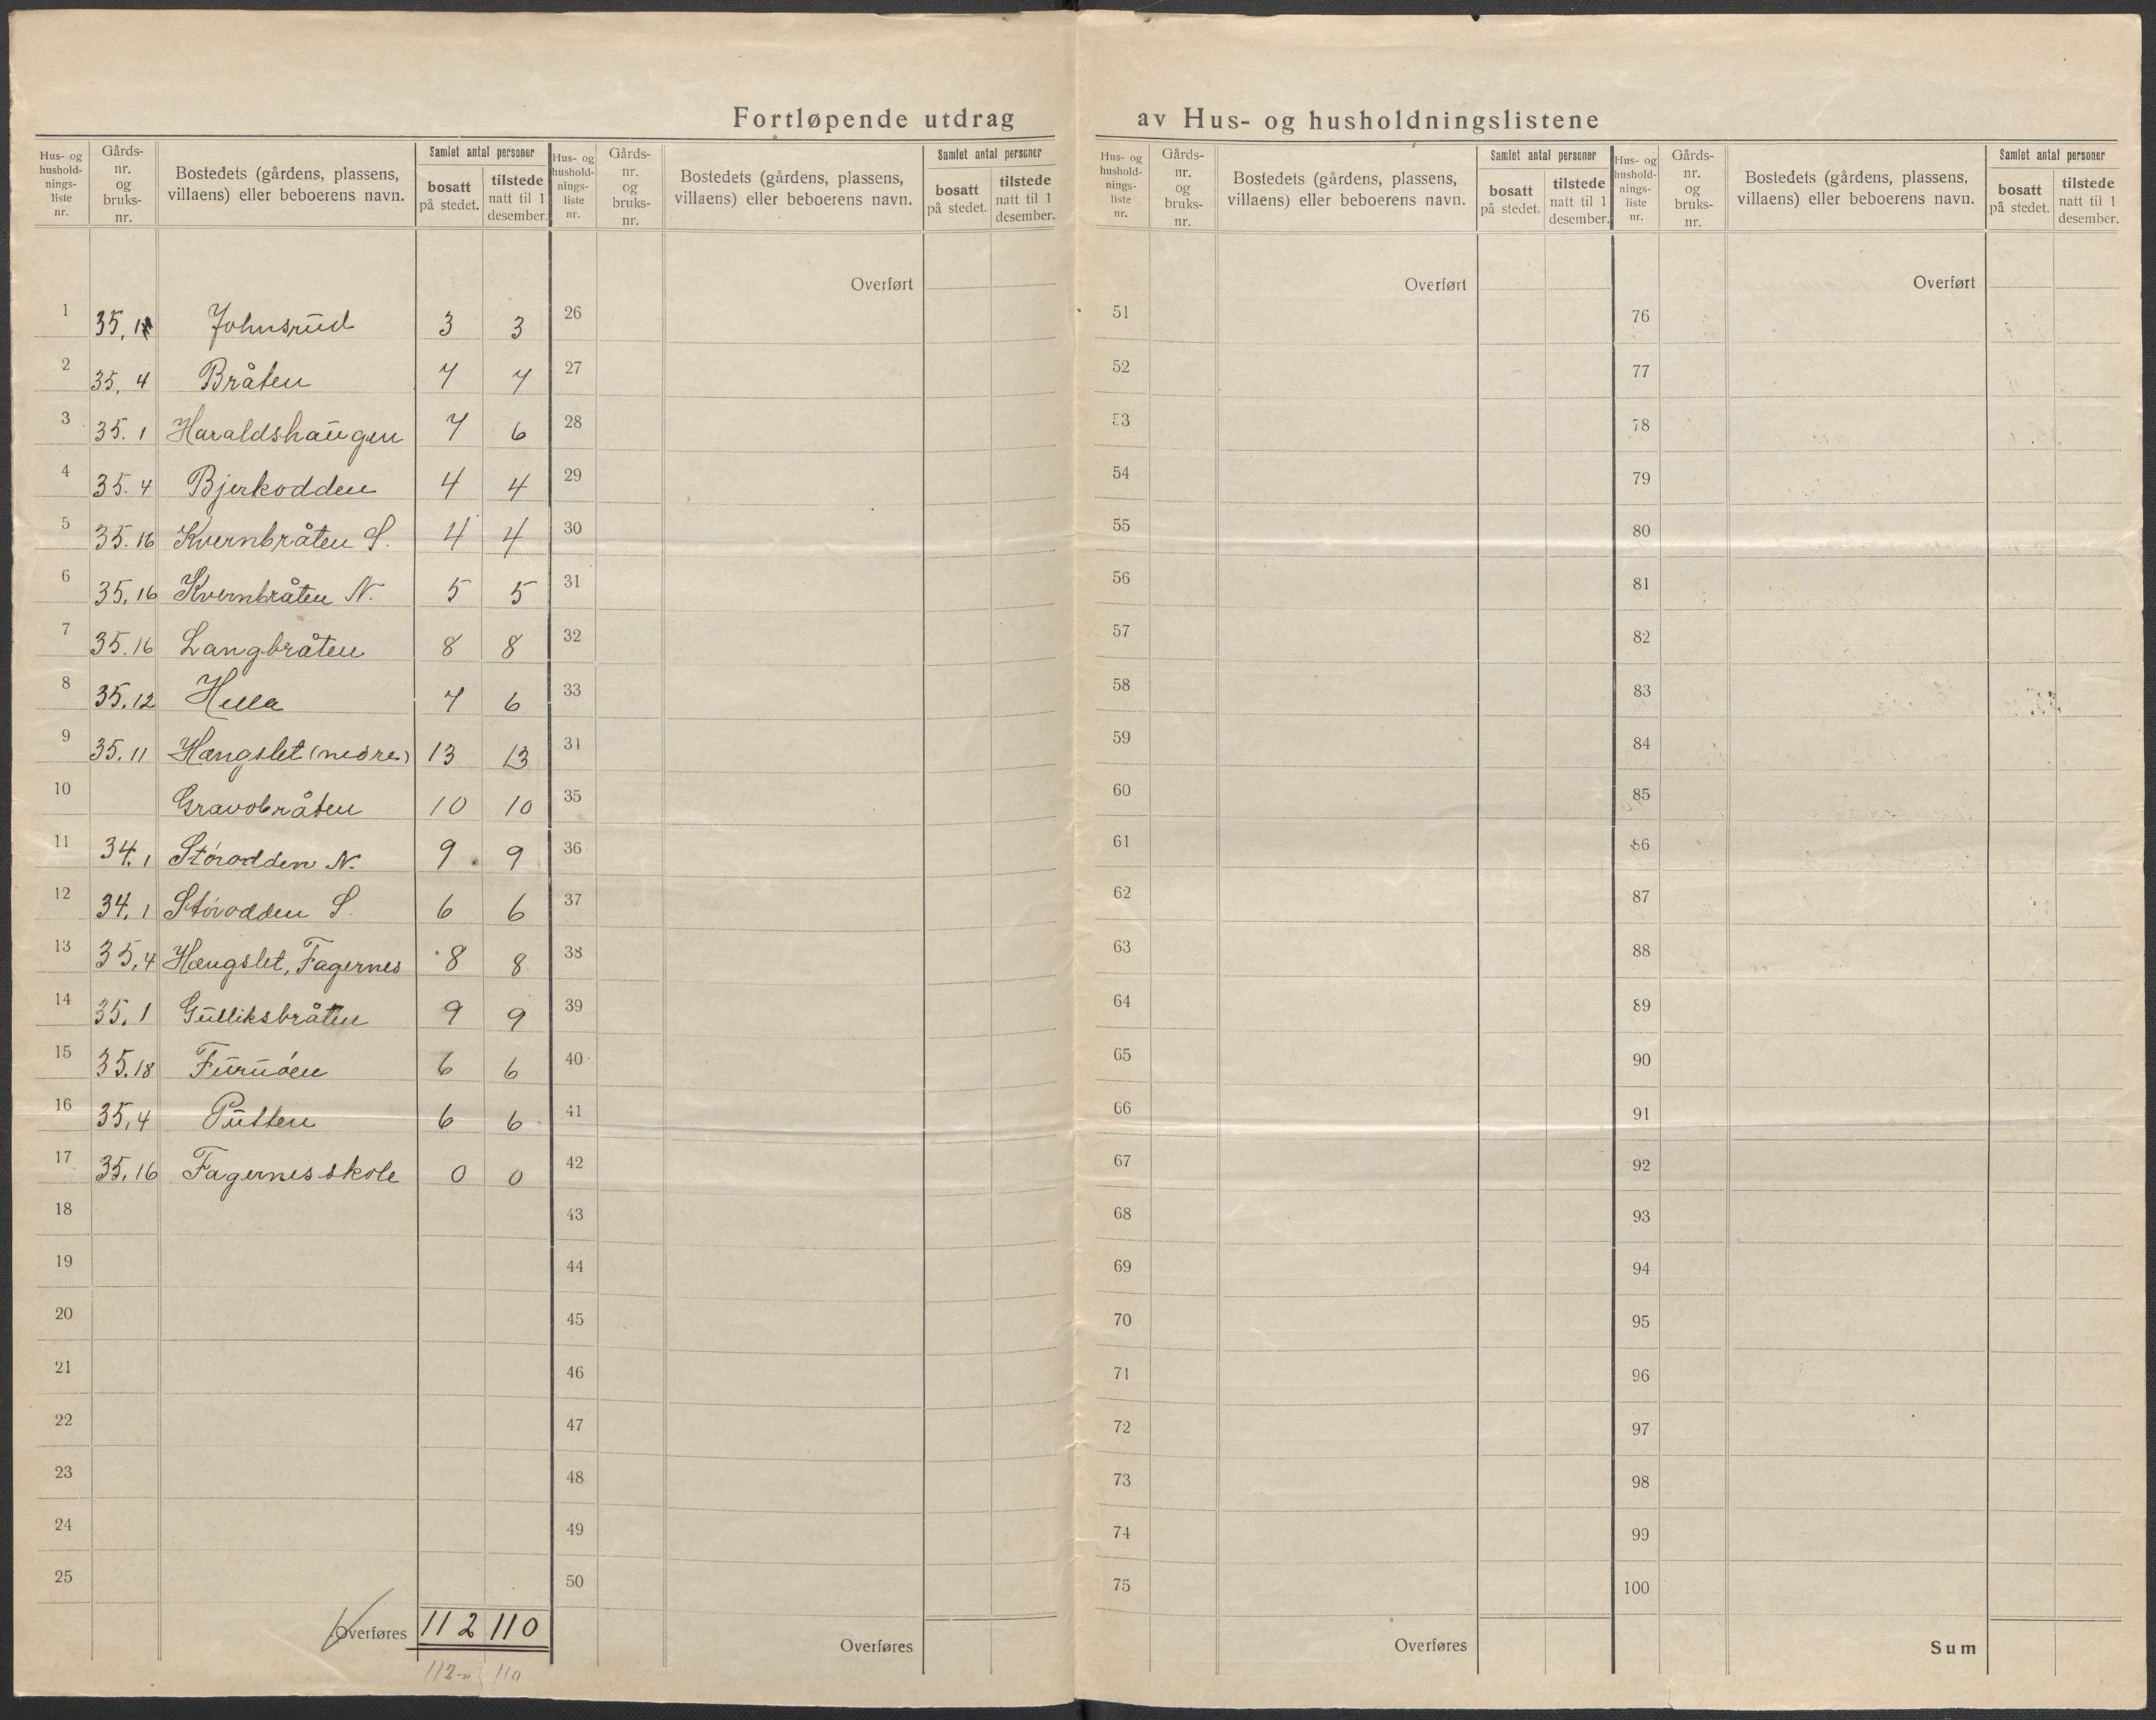 Fortløpende utdrag av Hus- og husholdningslistene
Hus- og hushold-nings-liste nr. Gårds-nr. og bruks-nr. Bostedets (gårdens, plassens, villaens) eller beboerens navn. Samlet antal personer bosatt på stedet. tilstede natt til 1 desember.
Hus- og hushold-nings-liste nr. Gårds-nr. og bruks-nr. Bostedets (gårdens, plassens, villaens) eller beboerens navn. Samlet antal personer bosatt på stedet. tilstede natt til 1 desember.
Hus- og hushold-nings-liste nr. Gårds-nr. og bruks-nr. Bostedets (gårdens, plassens, villaens) eller beboerens navn. Samlet antal personer bosatt på stedet. tilstede natt til 1 desember.
Hus- og hushold-nings-liste nr. Gårds-nr. og bruks-nr. Bostedets (gårdens, plassens, villaens) eller beboerens navn. Samlet antal personer bosatt på stedet. tilstede natt til 1 desember.
1 Johnsrud 3 3
2 35,4 Bråten 7 7
3 35.1 Haraldshaugen 7 6
4 35.4 Bjerkodden 4 4
5 35.16 Kvernbråten S. 4 4
6 35,16 Kvernbråten N. 5 5
7 35.16 Langbråten 8 8
8 35.12 Hella 7 6
9 35.11 Hængslet (nedre) 13 13
10 Gravobråten 10 10
11 34,1 Störodden N. 9 9
12 34,1 Störodden S. 6 6
13 35,4 Hængslet, Fagernes 8 8
14 35,1 Gulliksbråten 9 9
15 35.18 Furuöen 6 6
16 35,4 Putten 6 6
17 35,16 Fagernes skole 0 0
18
19
20
21
22
23
24
25
Overføres 112 110
112 110
Overført
26
27
28
29
30
31
32
33
34
35
36
37
38
39
40
41
42
43
44
45
46
47
48
49
50
Overføres
Overført
51
52
53
54
55
56
57
58
59
60
61
62
63
64
65
66
67
68
69
70
71
72
73
74
75
Overføres
Overført
76
77
78
79
80
81
82
83
84
85
86
87
88
89
90
91
92
93
94
95
96
97
98
99
100
Sum